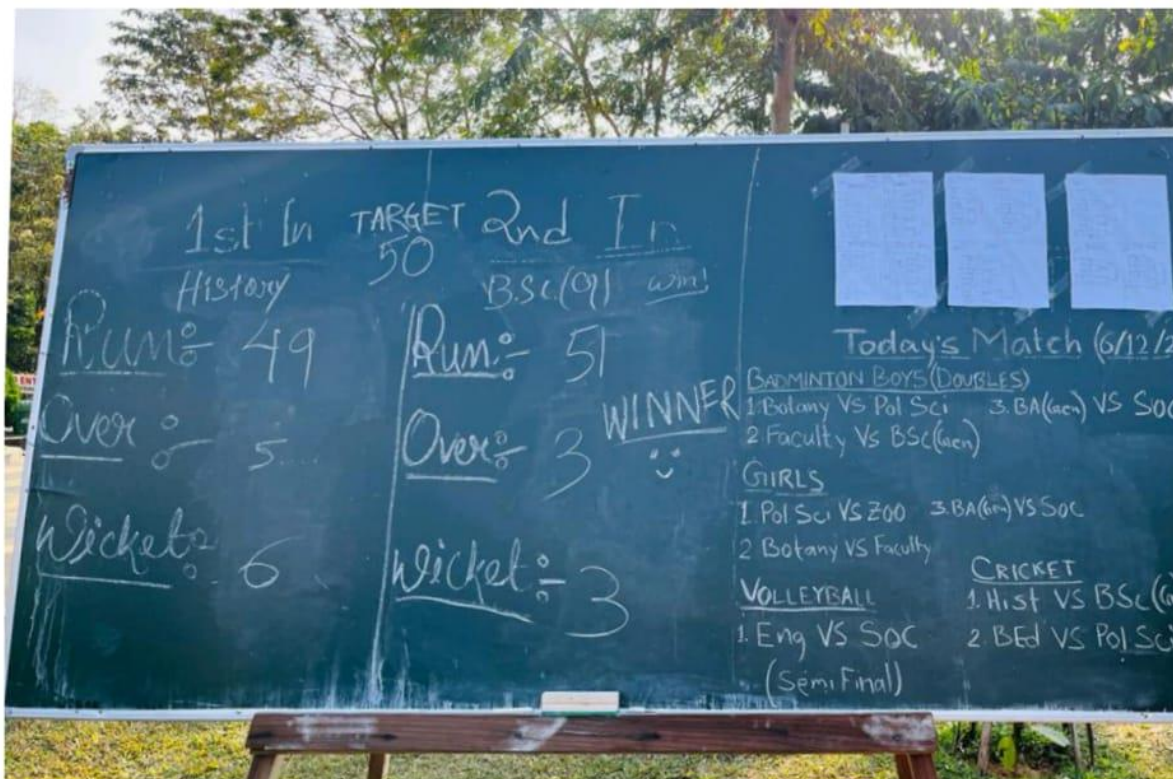 1st In
History
Run:- 49
Over:- 5
Wicket:- 6
TARGET
50
2nd In
win!
Run:- 51
Over:- 3
Wicket:- 3
WINNER
Today's Match (6/12/2
BADMINTON BOYS (DOUBLES)
1. Botany VS Pol Sci 3. BA(Gen) VS Soc
2 Faculty Vs BSc(Gen)
GIRLS
1. Pol Sci VS ZOO 3. BA(Gen) VS Soc
2 Botany VS Faculty
VOLLEYBALL
1. Eng VS Soc
(Semi Final)
CRICKET
1. Hist VS BSc(
2. BEd VS Pol Sci